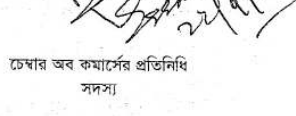 চেম্বার অব কমার্সের প্রতিনিধি
সদস্য